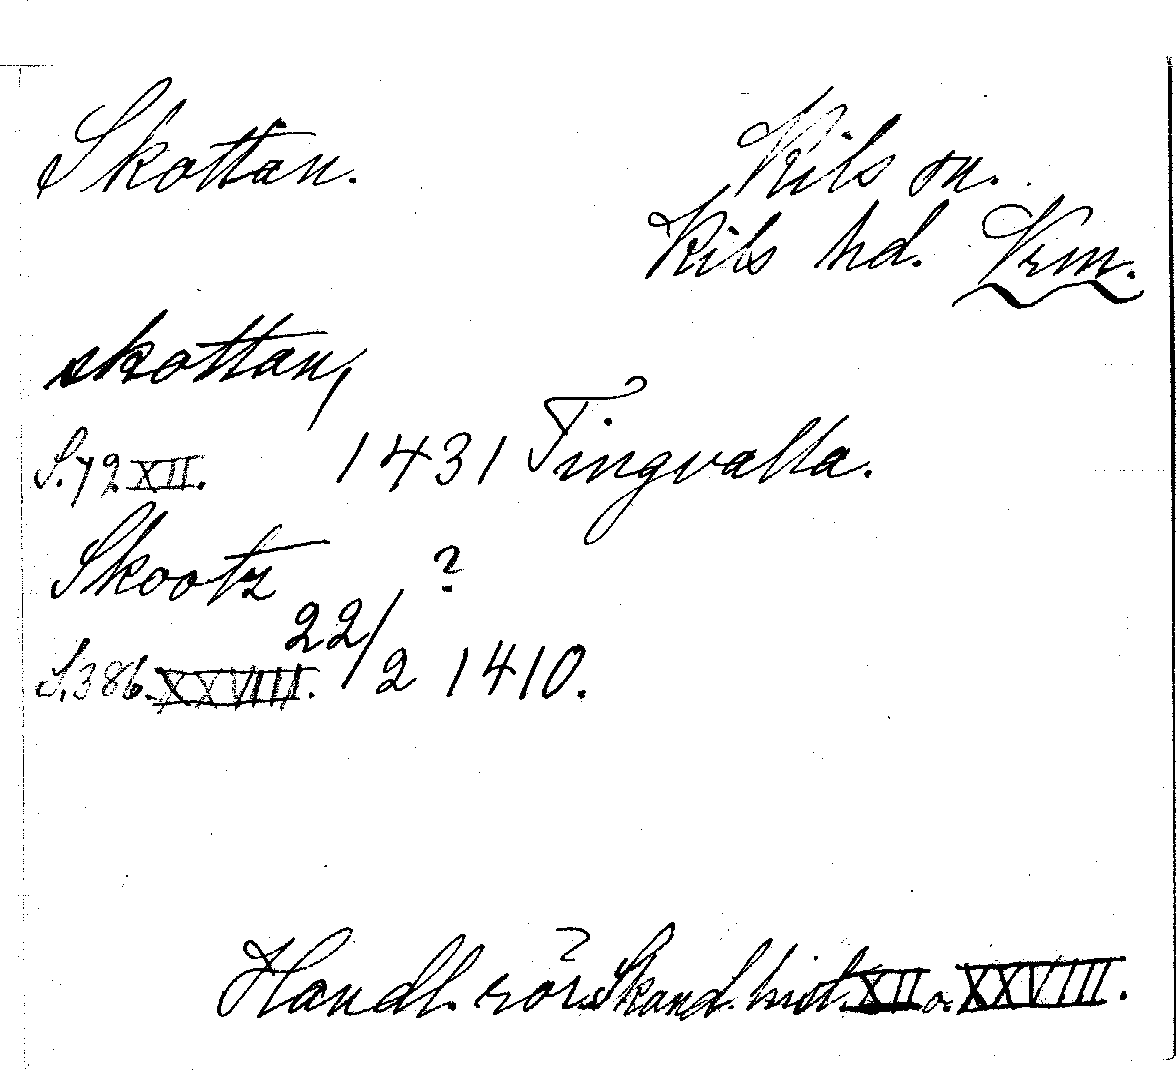 Skottan. Kils sn.
Kils hd. Vrm.
skottan,
S.72 XII. 1431 Tingvalla.
Skootz ?
S.386. XXVIII. 22/2 1410.
Handl. rör. Skand. hist. XII o. XXVIII.